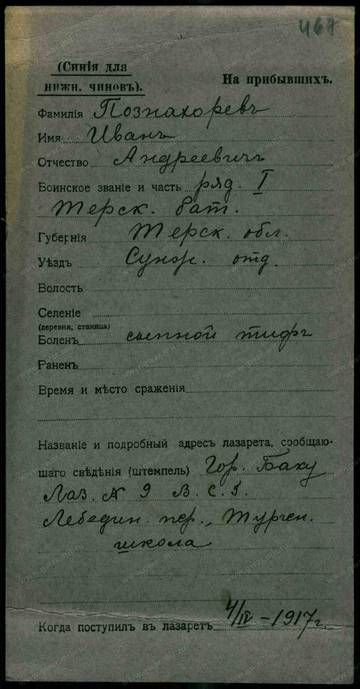 467
(Синія для
нижн. чиновъ).
На прибывшихъ.
Фамилія Познахоревъ
Имя Иванъ
Отчество Андреевичъ
Воинское званіе и часть ряд. I
Терск. бат.
Губернія Терск. обл.
Уѣздъ Сунж. отд.
Волость
Селеніе
(деревня, станица)
Боленъ сыпной тифъ
Раненъ
Время и мѣсто сраженія
Названіе и подробный адресъ лазарета, сообщаю-
щаго свѣдѣнія (штемпель) Гор. Баку
Лаз. № 9 В. С. Г.
Лебедин. пер., Турген.
школа
Когда поступилъ въ лазаретъ 4/IV – 1917 г.